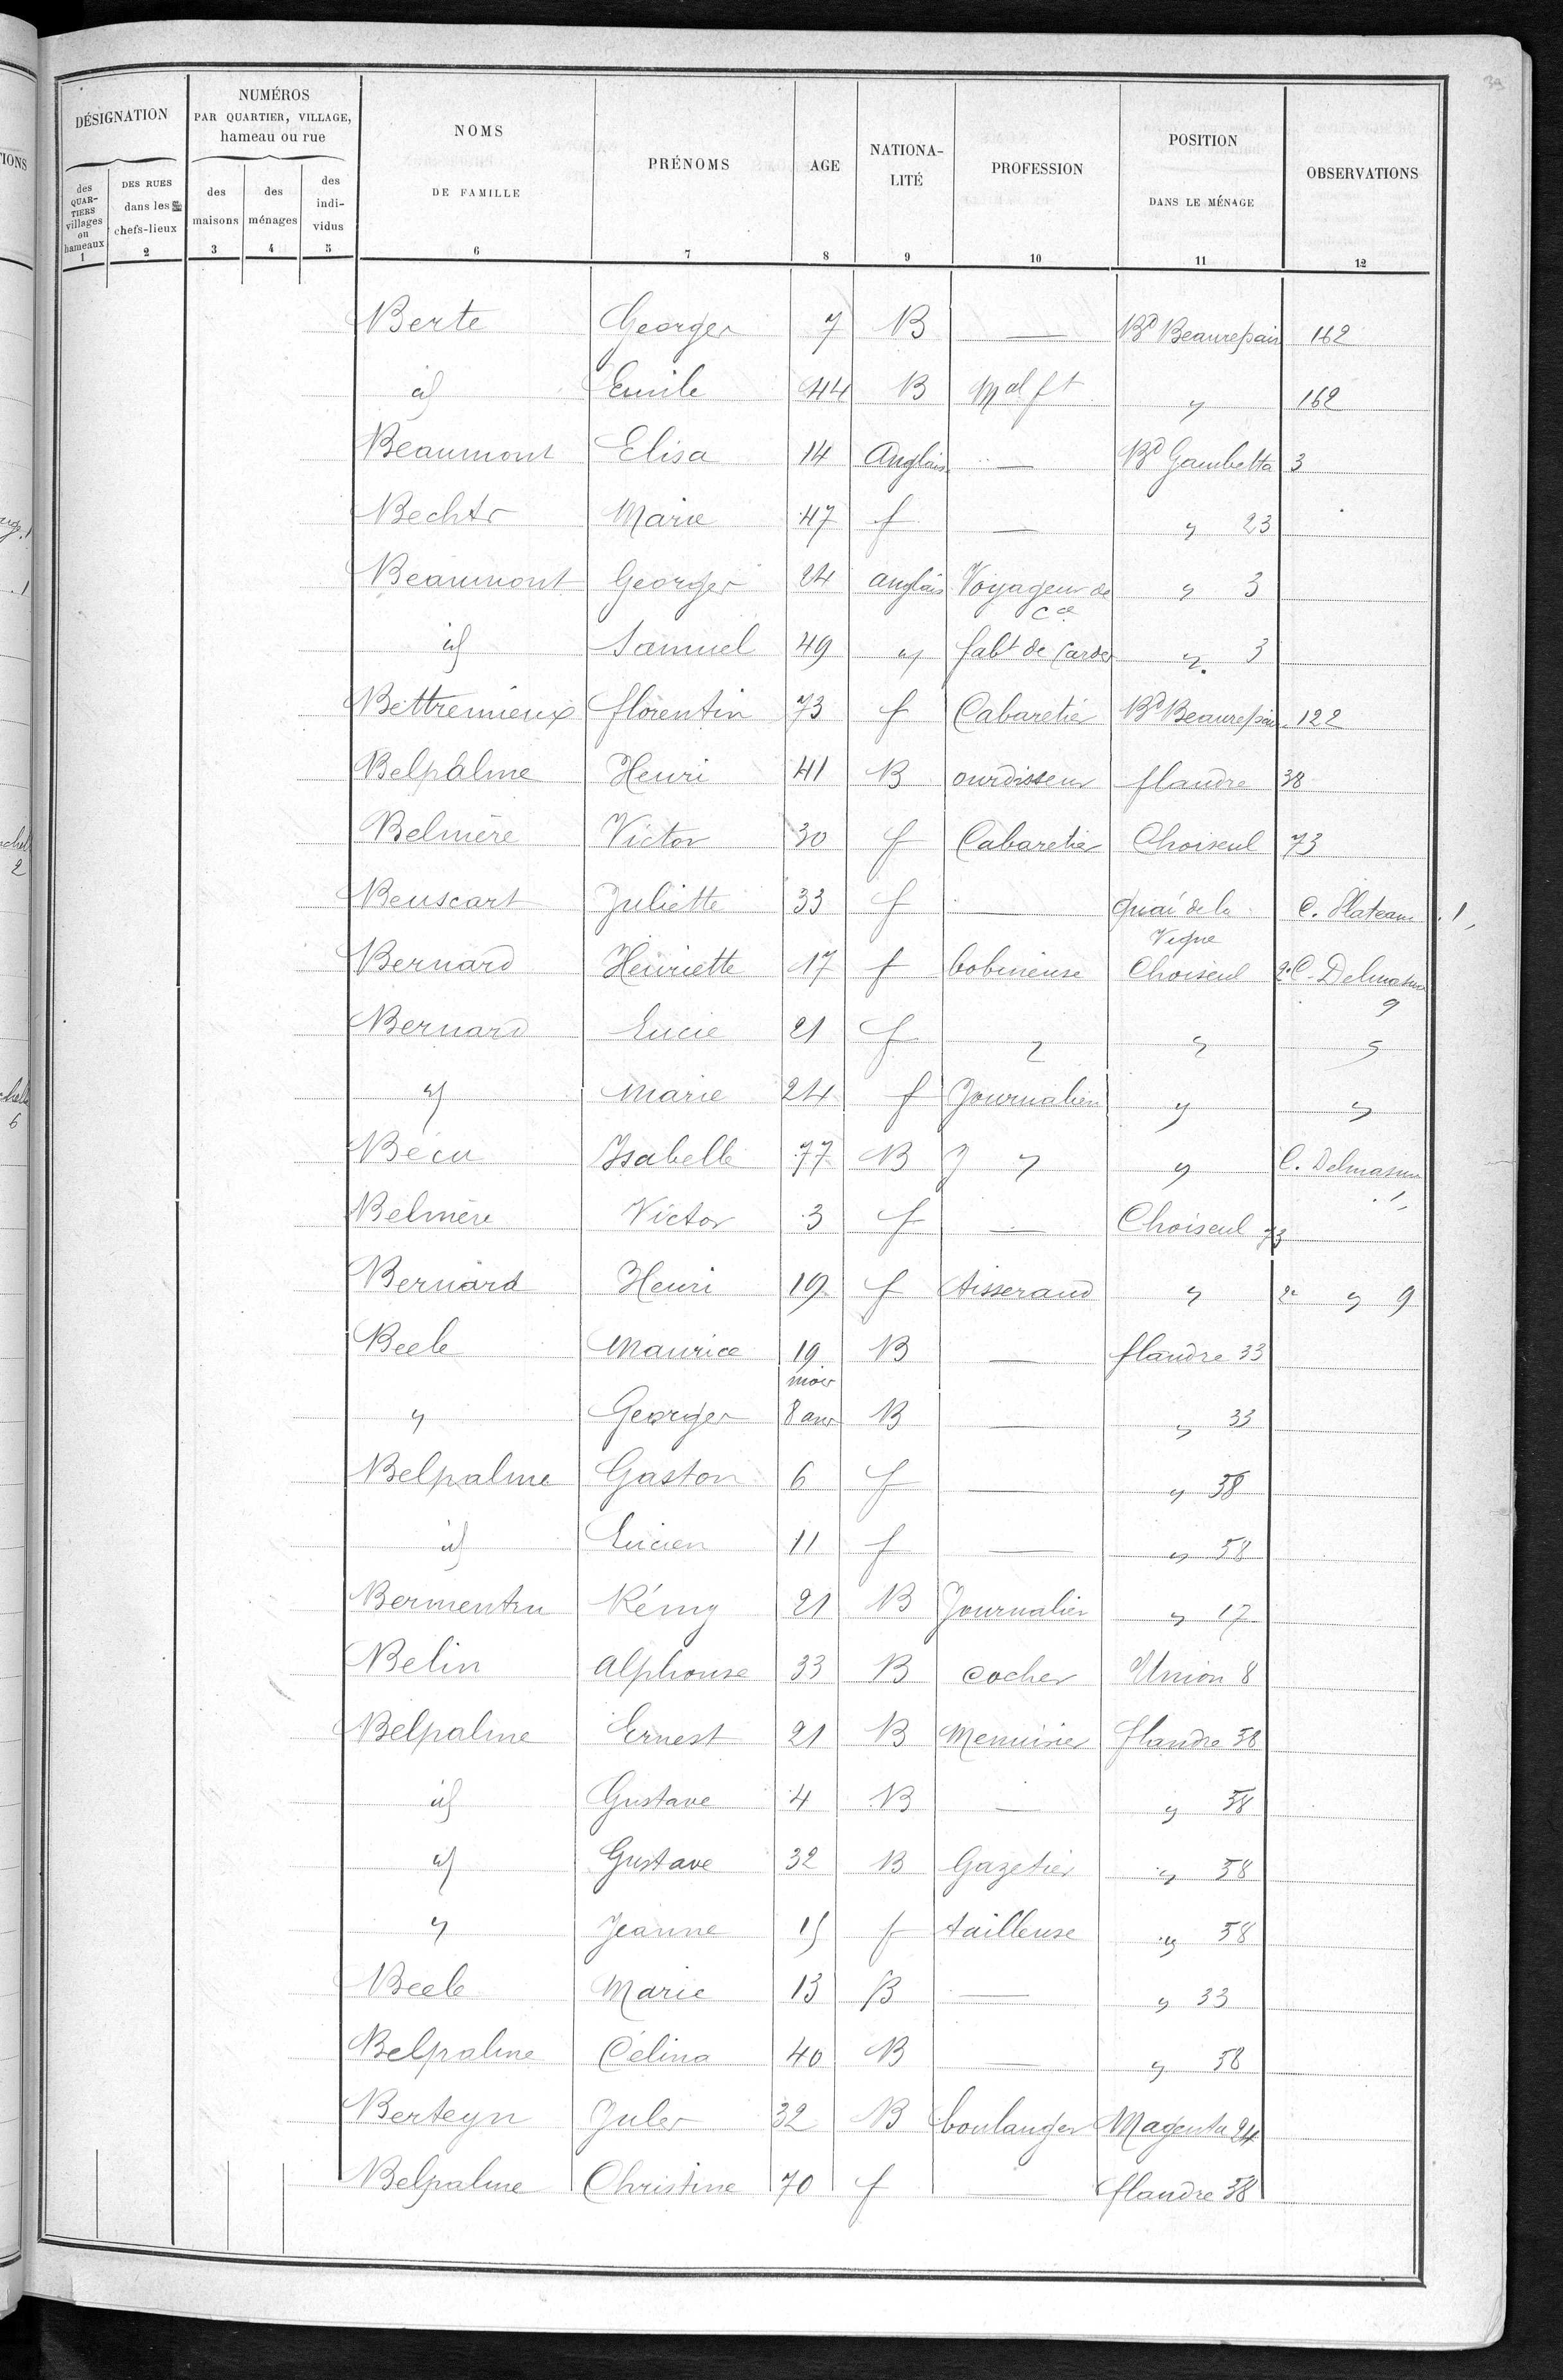 39
DÉSIGNATION
NUMÉROS PAR QUARTIER, VILLAGE, hameau ou rue
NOMS DE FAMILLE
PRÉNOMS
AGE
NATIONA-LITÉ
PROFESSION
POSITION DANS LE MÉNAGE
OBSERVATIONS
des QUAR-TIERS villages ou hameaux
DES RUES dans les chefs-lieux
des maisons
des ménages
des indi-vidus
1 2 3 4 5 6 7 8 9 10 11 12
Berte Georges 7 B — Bd Beaurepair 162
id Emile 44 B Md ft " 162
Beaumont Elisa 14 Anglais — Bd Gambetta 3
Marie 47 f — " 23
Beaumont Georges 24 anglais Voyageur de Cce " 3
id Samuel 49 " fabt de Cardes " 3
Bettremieux florentin 73 f Cabaretier Bd Beaurepair 122
Belpalme Henri 41 B ourdisseur flandre 38
Belmère Victor 30 f Cabaretier Choiseul 73
Beuscart Juliette 33 f — quai de la Vigne C. Plateau .1,
Bernard Henriette 17 f bobineuse Choiseul 2e C. 9
Bernard Lucie 21 f " " "
" Marie 24 f Journalier " "
Bécu Isabelle 77 B J " " C. 1,
Belmère Victor 3 f — Choiseul 73
Bernard Henri 19 f tisserand " 2e " 9
Beele Maurice 19 mois B — flandre 33
" Georges 8 ans B — " 33
Belpalme Gaston 6 f — " 58
id Lucien 11 f — " 58
Bermentin Rémy 21 B Journalier " 17
Belin Alphonse 33 B cocher Union 8
Belpalme Ernest 21 B Menuisier flandre 58
id Gustave 4 B — " 58
id Gustave 32 B Gazetier " 58
" Jeanne 15 f tailleuse " 58
Beele Marie 13 B — " 33
Belpalme Célina 40 B — " 58
Berteyn Jules 32 B boulanger Magenta 24
Belpalme Christine 70 f — flandre 58